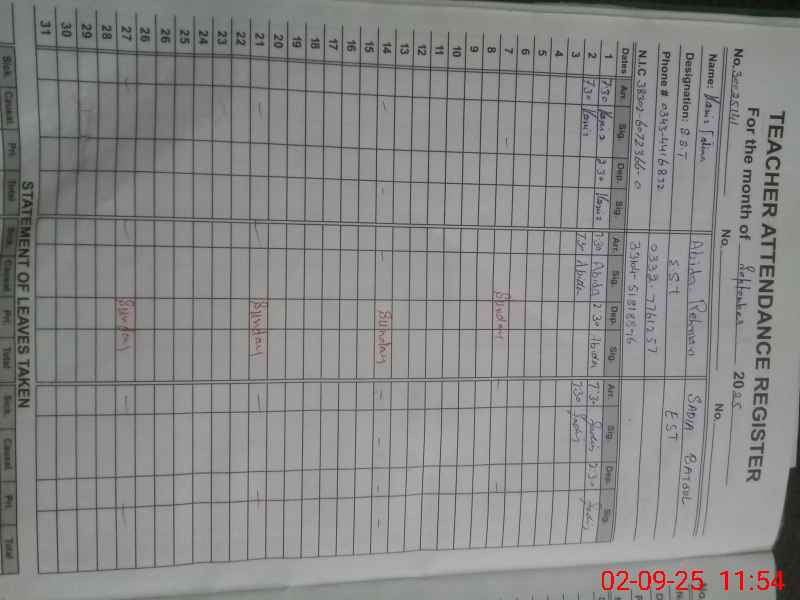 TEACHER ATTENDANCE REGISTER
For the month of September 2025
No. 30025141 No. No.
Name: Kaniz Fatima Abida Rehman SADIA BATOOL
Designation: S.S.T EST EST
Phone # 0343-4416832 0332-7761257
N.I.C 38302 6072366-0
Dates Arr. Sig. Dep. Sig. Arr. Sig. Dep. Sig. Arr. Sig. Dep. Sig.
1 7:30 Kaniz 2:30 Kaniz 7:30 Abida 2:30 Abida 7:30 Sadia 2:30 Sadia
2 7:30 Kaniz 7:30 Abida 7:30 Sadia
3
4
5
6
7 Sunday
8
9
10
11
12
13
14 Sunday
15
16
17
18
19
20
21 Sunday
22
23
24
25
26
27 Sunday
28
29
30
31
STATEMENT OF LEAVES TAKEN
Sick. Causal Pri. Total Sick. Causal Pri. Total Sick. Causal Pri. Total
02-09-25 11:54